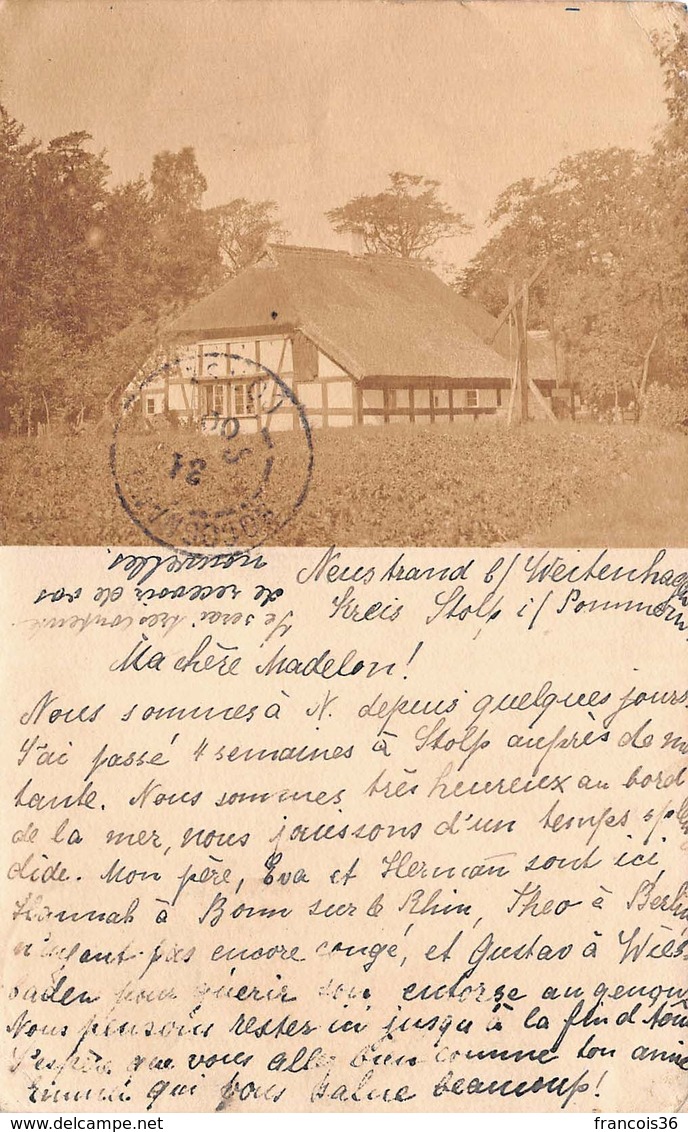 Neustrand b/ Weitenhagen
Kreis Stolp i/ Pommern
Je serai très contente
de recevoir de vos
nouvelles.
Ma chère Madelon!
Nous sommes à N. depuis quelques jours.
J'ai passé 4 semaines à Stolp auprès de ma
tante. Nous sommes très heureux au bord
de la mer, nous jouissons d'un temps splen
dide. Mon père, Eva et Herman sont ici,
Hannah à Bonn sur le Rhin, Theo à Berlin
n'ayant pas encore congé, et Gustav à Wies-
baden pour guérir son entorse au genou.
Nous pensons rester ici jusqu'à la fin d'août
J'espère que vous allez bien comme ton amie
qui vous salue beaucoup!
21
francois36